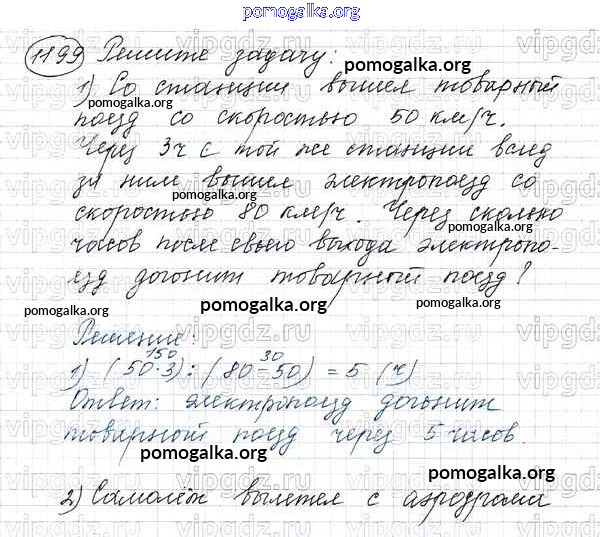 pomogalka.org
1199 Решите задачу:
pomogalka.org
1) Со станции вышел товарный
pomogalka.org
поезд со скоростью 50 км/ч.
Через 3ч с той же станции вслед
pomogalka.org
за ним вышел электропоезд со
pomogalka.org
скоростью 80 км/ч. Через сколько
pomogalka.org
часов после своего выхода электропо-
езд догонит товарный поезд?
pomogalka.org
pomogalka.org
pomogalka.org
Решение:
150 30
1) (50·3):(80-50) = 5 (ч)
Ответ: электропоезд догонит
товарный поезд через 5 часов.
pomogalka.org
2) Самолёт вылетел с аэродрома
pomogalka.org
vipgdz.ru